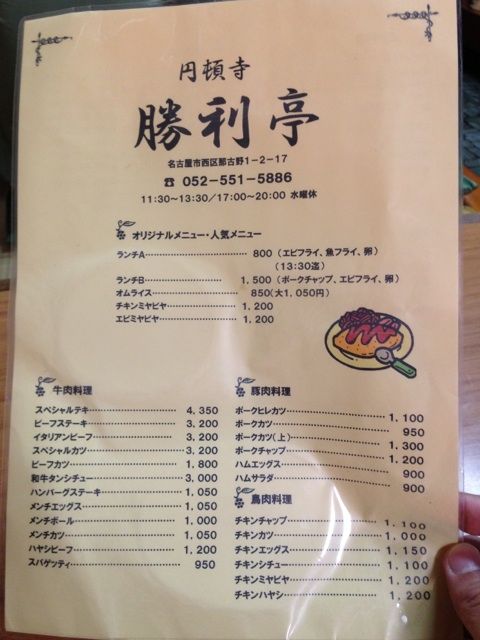 円頓寺
勝利亭
名古屋市西区那古野1-2-17
☎ 052-551-5886
11:30~13:30/17:00~20:00 水曜休
オリジナルメニュー・人気メニュー
ランチA 800 (エビフライ、魚フライ、卵)
(13:30迄)
ランチB 1,500 (ポークチャップ、エビフライ、卵)
オムライス 850(大1,050円)
チキンミヤビヤ 1,200
エビミヤビヤ 1,200
牛肉料理
スペシャルテキ 4,350
ビーフステーキ 3,200
イタリアンビーフ 3,200
スペシャルカツ 3,200
ビーフカツ 1,800
和牛タンシチュー 3,000
ハンバーグステーキ 1,050
メンチエッグス 1,050
メンチボール 1,000
メンチカツ 1,050
ハヤシビーフ 1,200
スパゲッティ 950
豚肉料理
ポークヒレカツ 1,100
ポークカツ 950
ポークカツ(上) 1,300
ポークチャップ 1,200
ハムエッグス 900
ハムサラダ 900
鳥肉料理
チキンチャップ 1,100
チキンカツ 1,000
チキンエッグス 1,150
チキンシチュー 1,100
チキンミヤビヤ 1,200
チキンハヤシ 1,200